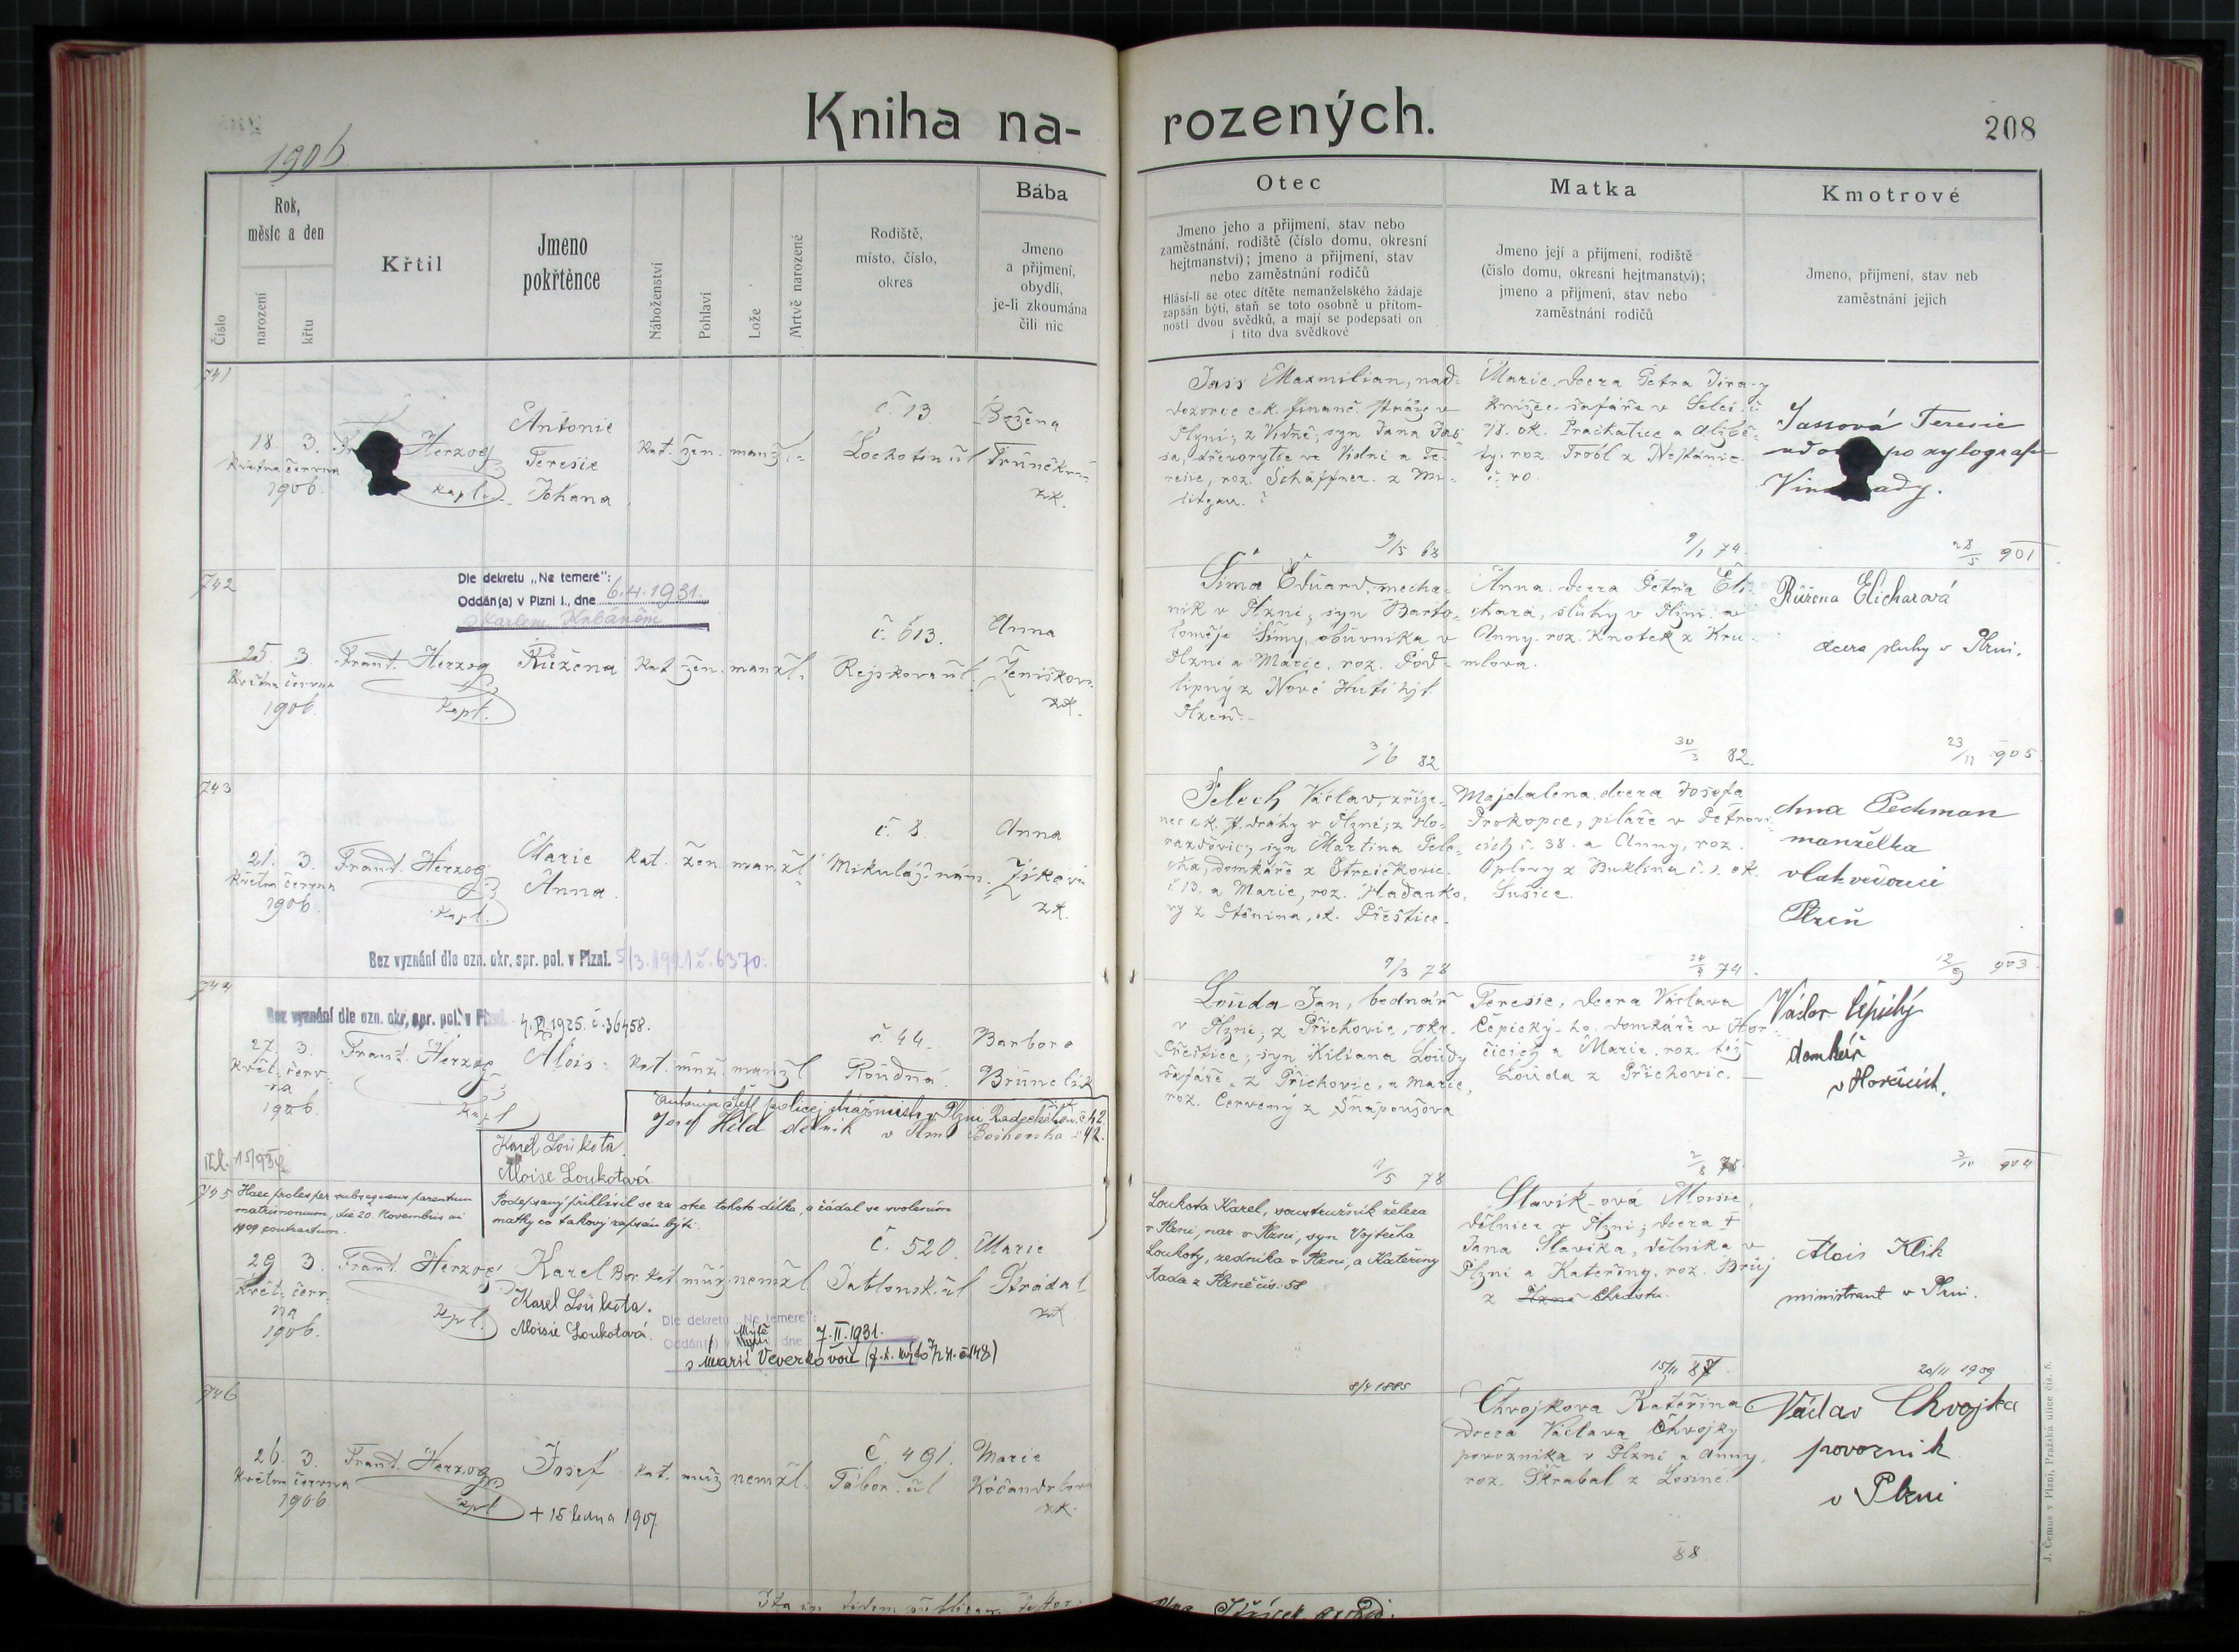 Kniha na-
rozených.
208
1906
Číslo
Rok,
měsíc a den
narození
křtu
Křtil
Jmeno
pokřtěnce
Náboženství
Pohlaví
Lože
Mrtvě narozené
Rodiště,
místo, číslo,
okres
Bába
Jmeno
a přijmení,
obydlí,
je-li zkoumána
čili nic
Otec
Jmeno jeho a přijmení, stav nebo
zaměstnání, rodiště (číslo domu, okresní
hejtmanství); jmeno a přijmení, stav
nebo zaměstnání rodičů
Hlásí-li se otec dítěte nemanželského žádaje
zapsán býti, staň se toto osobně u přítom-
nosti dvou svědků, a mají se podepsati on
i tito dva svědkové
Matka
Jmeno její a přijmení, rodiště
(číslo domu, okresní hejtmanství);
jmeno a přijmení, stav nebo
zaměstnání rodičů
Kmotrové
Jmeno, přijmení, stav neb
zaměstnání jejich
741
18. 3.
května června
1906.
Herzog
kapl.
Antonie
Teresie
Johana
kat. žen. manžl.
č. 13
Lochotín ul.
Božena
zk.
Jass Maxmilian, nad-
dozorce c.k. finanč. stráže v
Plzni; z Vídně; syn Jana Jas-
sa, dřevorytce ve Vídni a Te-
resie, roz. Schäffner z
9/5 68
Marie, dcera Petra
v
ok. Prachatice a Alžbě-
ty, roz. z
č. 40
9/1 74
Jassová Teresie
po xylograf
28/5 901
742
Dle dekretu „Ne temere":
Oddán(a) v Plzni I., dne 6.4.1931.
25. 3.
května června
1906.
Frant. Herzog
kapl.
Růžena
kat. žen. manžl.
č. 613.
Rejskova ul.
Anna
Ženíškov.
zk.
Šíma Eduard, mecha-
nik v Plzni, syn Barto-
loměje Šímy, obuvníka v
Plzni a Marie, roz. Pod-
lipný z Nové Huti hjt
Plzeň.
3/6 82
Anna, dcera Petra Eli-
chara, sluhy v Plzni a
Anny, roz. Knotek z Kru-
mlova.
30/3 82.
Růžena Elicharová
dcera sluhy v Plzni.
23/11 905.
743
21. 3.
května června
1906.
Frant. Herzog
kapl.
Marie
Anna.
kat. žen. manžl.
č. 8.
Mikuláš. nám.
Anna
zk.
Bez vyznání dle ozn. okr. spr. pol. v Plzni. 5/3. 1921 č. 6370.
Pelech Václav, zříze-
nec c.k. st. dráhy v Plzni; z Ho-
ražďovic, syn Martina Pele-
cha, domkáře z
č. 13. a Marie, roz. Hadanko-
vy z ok. Přeštice.
9/3 78
Majdalena, dcera Josefa
Prokopce, piláře v Petrovi-
cích č. 38. a Anny, roz.
z č. 1. ok.
Sušice.
74.
Anna Pechman
manželka
vlakvedoucí
Plzeň
12/9 903.
744
Bez vyznání dle ozn. okr. spr. pol. v Plzni. 1925. č. 36458.
27. 3.
květ. červ-
na
1906.
Frant. Herzog
kapl.
Alois
kat. muž. manžl.
č. 44.
Roudná.
Barbora
Louda Jan, bednář
v Plzni, z Příchovic, okr.
Přeštice; syn Kiliana Loudy
šafáře z Příchovic, a Marie,
roz. Červený z Snopoušova
1/5 78
Teresie, dcera Václava
Čepický-ho, domkáře v Hor-
čicích a Marie, roz. též
Louda z Příchovic.
Václav Čepický
domkář
v Horčicích.
904
Josef Held dělník v Plzni
Karel Loukota.
Aloisie Loukotová
745
Haec proles per subsequens parentum
matrimonium, die 20. Novembris ai
1909 contractum.
Podepsaný přihlásil se za otce tohoto dítka, a žádal se svolením
matky co takový zapsán býti:
29 3.
Květ. červ-
na
1906.
Frant. Herzog
kpl.
Karel
kat. muž. nemžl.
Karel Loukota.
Aloisie Loukotová.
č. 520.
Jablonsk. ul
Marie
Strádal
zk
Dle dekretu „Ne temere":
Oddán(a) v Mýtě dne 7.II.1931.
s Marií Veverkovou
Loukota Karel, soustružník železa
v Plzni, nar. v Plzni, syn Vojtěcha
Loukoty, zedníka v Plzni, a Kateřiny
Rada z Plzně čís. 58
8/4 1885
Slavík-ová Aloisie,
dělnice v Plzni; dcera †
Jana Slavíka, dělníka v
Plzni a Kateřiny, roz. Brůj
z Chrástu.
15/11 87.
Alois Klik
ministrant v Plzni.
20/11 1909
746
26. 3.
května června
1906
Frant. Herzog
kpl
Josef
+ 15 ledna 1907
kat. muž nemžl.
č. 491.
Tábor. ul
Marie
zk.
Chvojkova Kateřina
dcera Václava Chvojky
povozníka v Plzni a Anny,
roz. Škrabal z Losiné.
88
Václav Chvojka
povozník
v Plzni
J. Čemus v Plzni, Pražská ulice čís. 5.